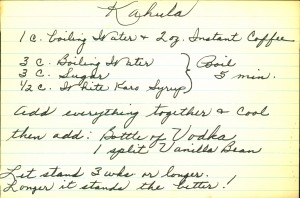 Kahula
1 c. Boiling Water & 2 oz. Instant Coffee
3 c. Boiling Water } Boil
3 c. Sugar 5 min.
1/2 c. White Karo Syrup
Add everything together & cool
then add: Bottle of Vodka
1 split Vanilla Bean
Let stand 3 wks or longer.
Longer it stands the better!